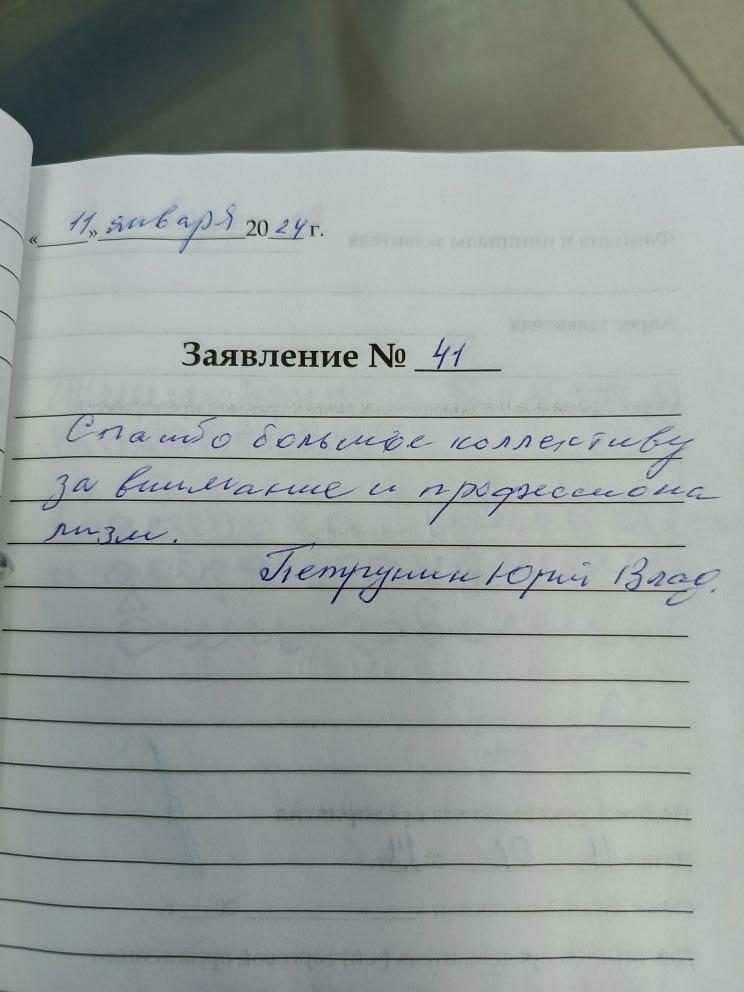 « 11 » января 2024 г.
Заявление № 41
Спасибо большое коллективу
за внимание и профессиона
лизм.
Петрунин Юрий Влад.